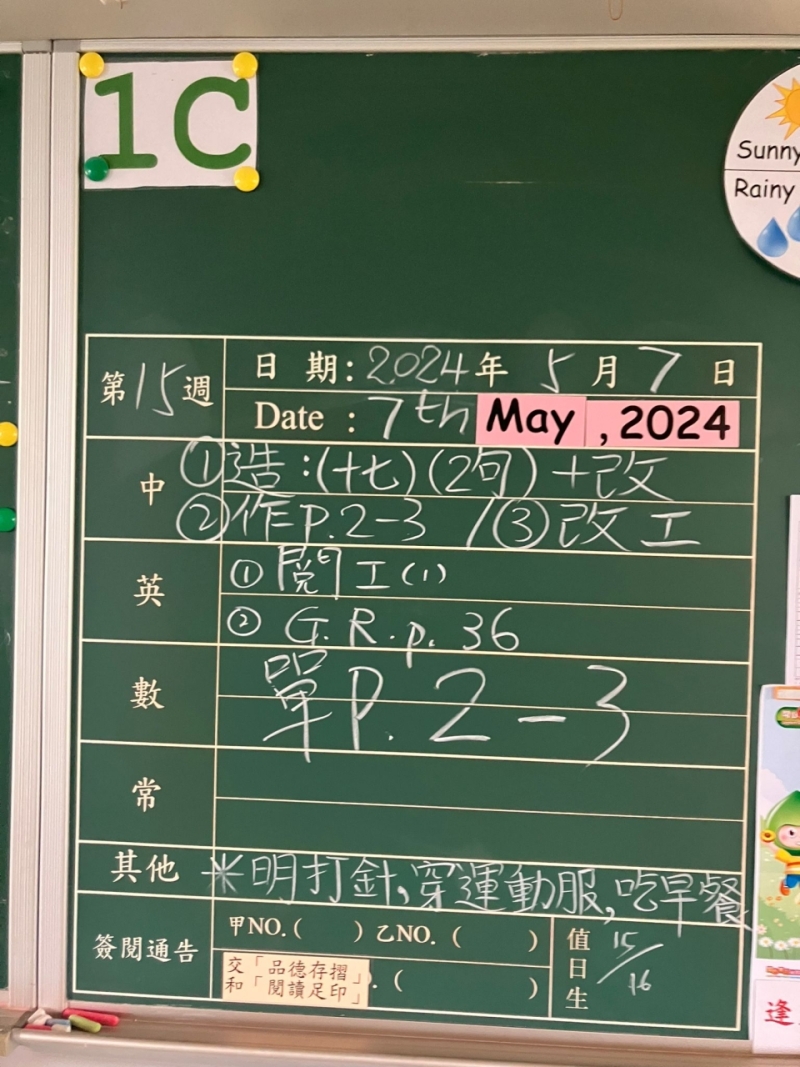 1C
Sunny
Rainy
第15週
日 期:2024年 5月7日
Date : 7th May , 2024
中
①造:(十七)(2句)+改
②作P.2-3 /③改工
英
①閱工(1)
② G.R.p. 36
數
單P.2-3
常
其他
*明打針,穿運動服,吃早餐
簽閱通告
甲NO.( ) 乙NO.( )
交「品德存摺」
和「閱讀足印」.( )
值日生
15/16
逢